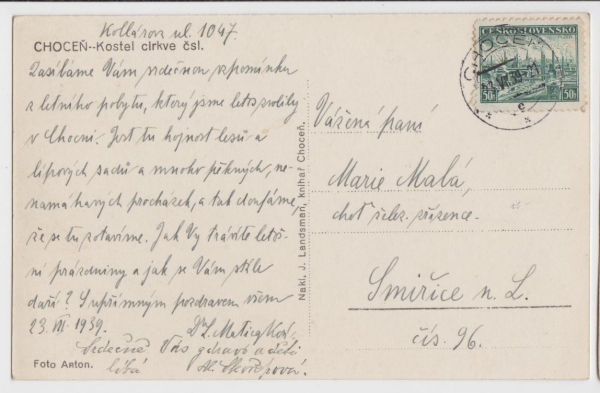 Kollárova ul. 1047.
CHOCEŇ--Kostel církve čsl.
Zasíláme Vám srdečnou vzpomínku
z letního pobytu, který jsme letos zvolili
v Chocni. Jest tu hojnost lesů a
lipových sadů a mnoho pěkných, ne-
namáhavých procházek, a tak doufáme,
že se tu zotavíme. Jak Vy trávíte letoš-
ní prázdniny a jak se Vám stále
daří? S upřímným pozdravem všem
23. VII. 1939.
Srdečně Vás zdraví a
líbá
Foto Anton.
Nakl. J. Landsman, knihař Choceň.
ČESKOSLOVENSKO
50h 50h
CHOCEŇ
Vážená paní
Marie Malá,
choť želez. zřízence.
Smiřice n. L.
čís. 96.